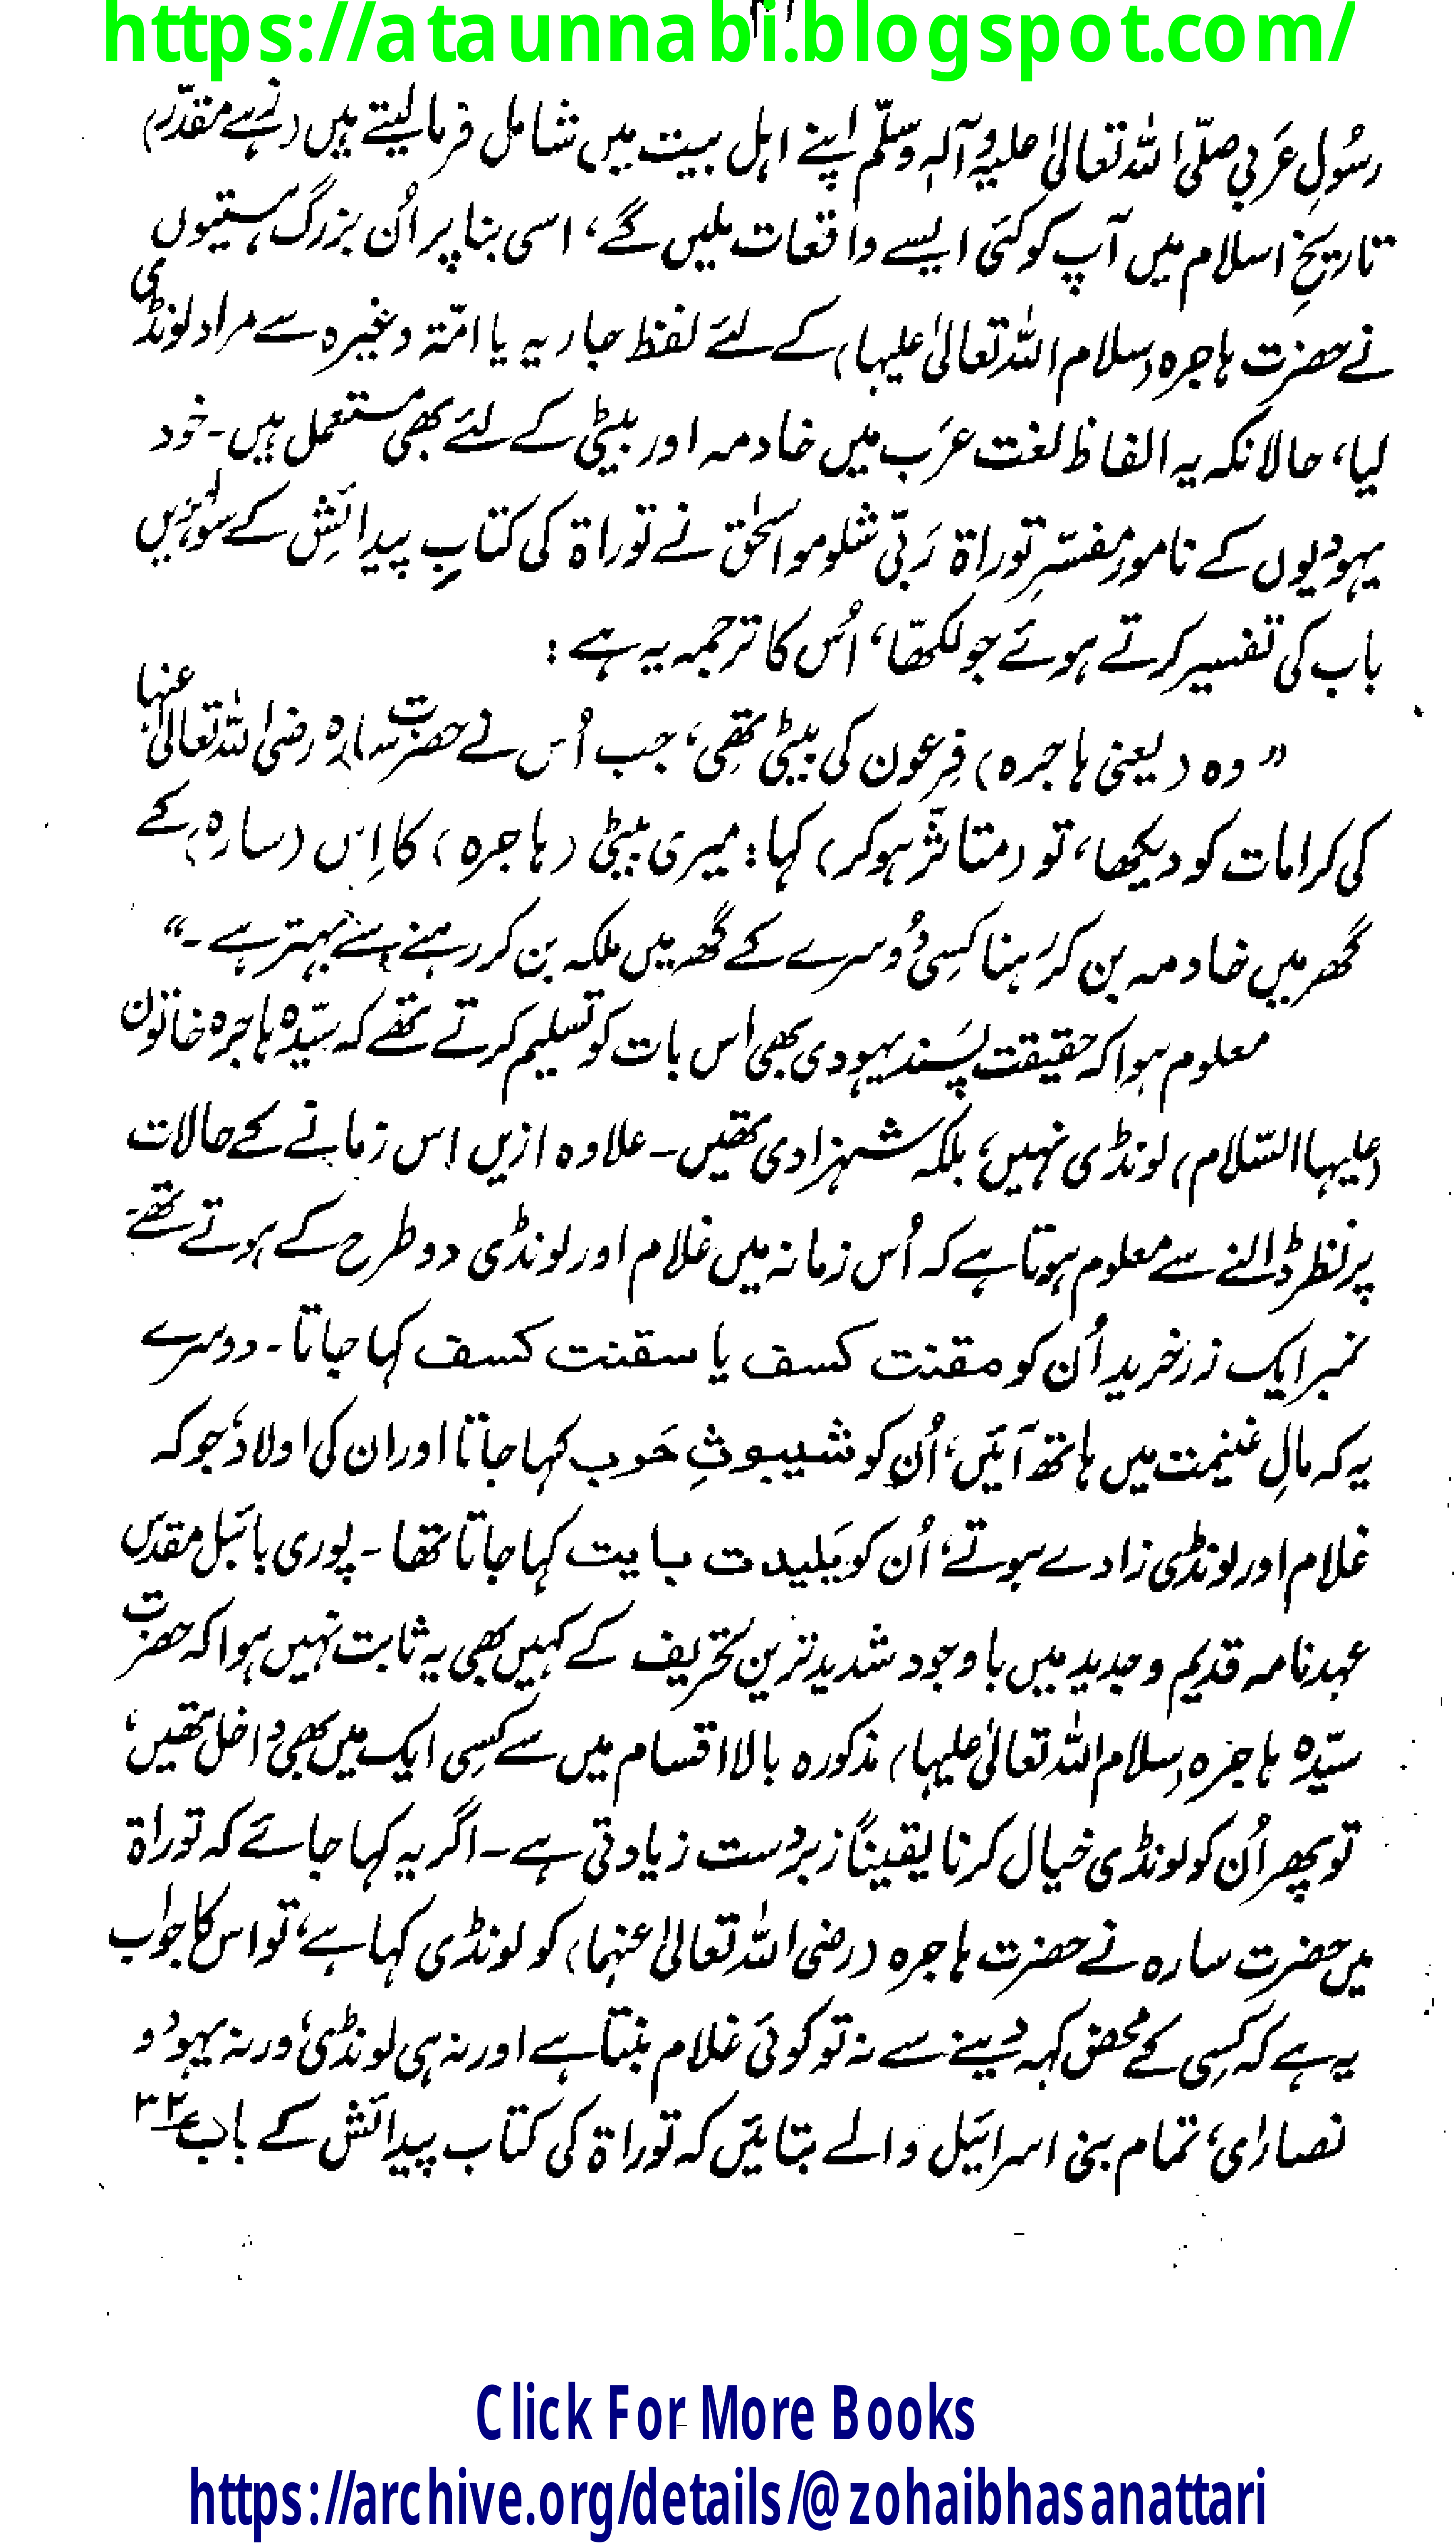 https://ataunnabi.blogspot.com/
رسُولِ عَربی صلّی اللہ تعالیٰ علیہ وآلہٖ وسلّم اپنے اہل بیت میں شامل فرما لیتے ہیں (زہے مقدّر)
تاریخِ اسلام میں آپ کو کئی ایسے واقعات ملیں گے، اسی بنا پر اُن بزرگ ہستیوں
نے حضرت ہاجرہ (سلام اللہ تعالیٰ علیہا) کے لئے لفظ جاریہ یا امّۃ وغیرہ سے مراد لونڈی
لیا، حالانکہ یہ الفاظ لغت عرَب میں خادمہ اور بیٹی کے لئے بھی مستعمل ہیں۔ خود
یہودیوں کے نامور مفسّرِ توراۃ رَبّی شلومو اسحٰق نے توراۃ کی کتابِ پیدائش کے سولہویں
باب کی تفسیر کرتے ہوئے جو لکھّا، اُس کا ترجمہ یہ ہے :
” وہ (یعنی ہاجرہ) فِرعون کی بیٹی تھی، جب اُس نے حضرت سارہ رضی اللہ تعالیٰ عنہا
کی کرامات کو دیکھا، تو (متاثّر ہوکر) کہا : میری بیٹی (ہاجرہ) کا اِس (سارہ) کے
گھر میں خادمہ بن کر رَہنا کِسی دُوسرے کے گھر میں ملکہ بن کر رہنے سے بہتر ہے ۔“
معلوم ہوا کہ حقیقت پسَند یہودی بھی اس بات کو تسلیم کرتے تھے کہ سیّدہ ہاجرہ خاتون
(علیہا السّلام) لونڈی نہیں، بلکہ شہزادی تھیں۔ علاوہ ازیں اس زمانے کے حالات
پر نظر ڈالنے سے معلوم ہوتا ہے کہ اُس زمانہ میں غلام اور لونڈی دو طرح کے ہوتے تھے۔
نمبر ایک زرخرید اُن کو مقنت کسف یا سقنت کسف کہا جاتا ۔ دوسرے
یہ کہ مالِ غنیمت میں ہاتھ آئیں، اُن کو شیبوثِ حَرب کہا جاتا اور ان کی اولاد، جو کہ
غلام اور لونڈی زادے ہوتے، اُن کو یَلیدت بایت کہا جاتا تھا ۔ پوری بائبل مقدس
عہدنامہ قدیم و جدید میں باوجود شدید ترین تحریف کے کہیں بھی یہ ثابت نہیں ہوا کہ حضرت
سیّدہ ہاجرہ (سلام اللہ تعالیٰ علیہا) مذکورہ بالا اقسام میں سے کسِی ایک میں بھی داخل تھیں،
تو پھر اُن کو لونڈی خیال کرنا یقیناً زبردست زیادتی ہے۔ اگر یہ کہا جائے کہ توراۃ
میں حضرت سارہ نے حضرت ہاجرہ (رضی اللہ تعالیٰ عنہما) کو لونڈی کہا ہے، تو اس کا جواب
یہ ہے کہ کسِی کے محض کہہ دینے سے نہ تو کوئی غلام بنتا ہے اور نہ ہی لونڈی، ورنہ یہود و
نصاریٰ، تمام بنی اسرائیل والے بتائیں کہ توراۃ کی کتاب پیدائش کے باب ۳۲
Click For More Books
https://archive.org/details/@zohaibhasanattari